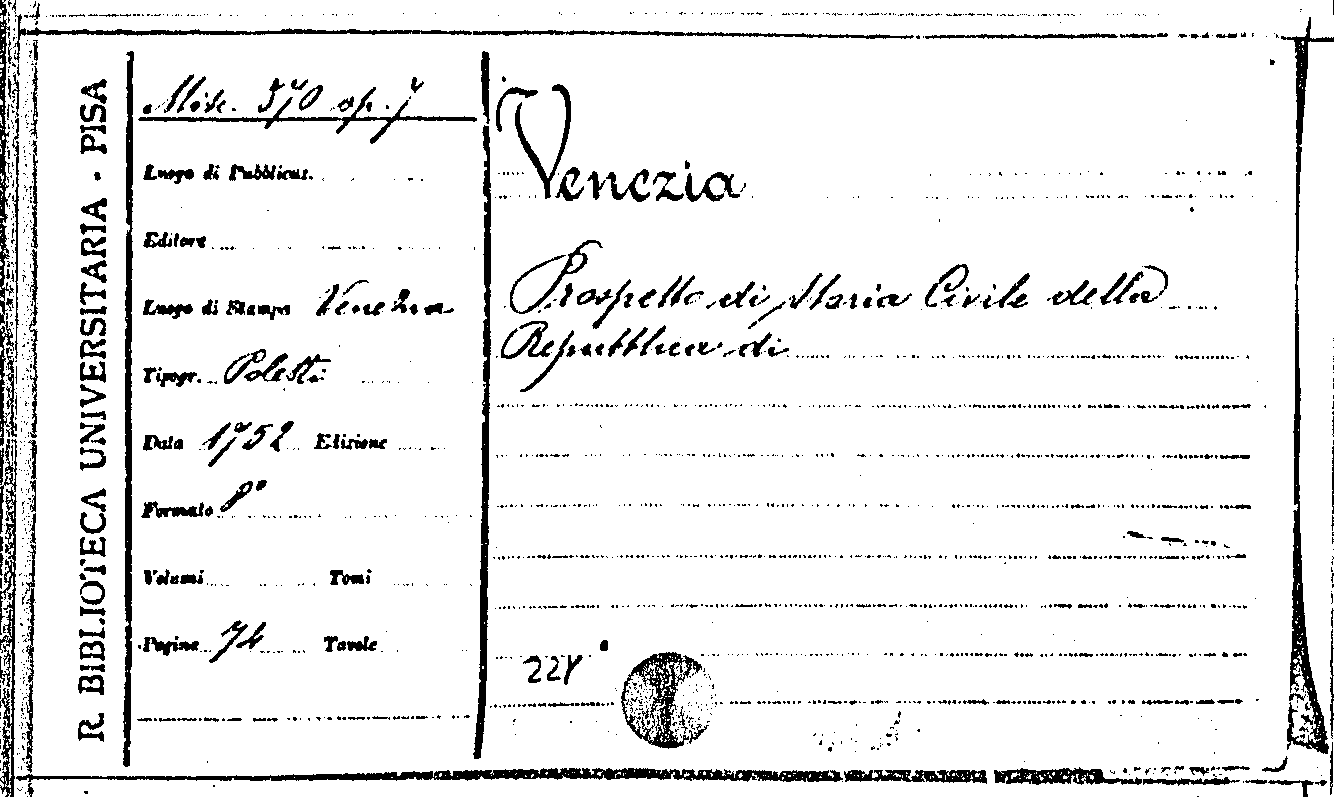 R. BIBLIOTECA UNIVERSITARIA - PISA
Misc. 570 op. 7
Luogo di Pubblicaz.
Editore
Luogo di Stampa Venezia
Tipogr. Poletti
Data 1752 Edizione
Formato 8°
Volumi Tomi
Pagine 74 Tavole
Venezia
Prospetto di Storia Civile della
Repubblica di